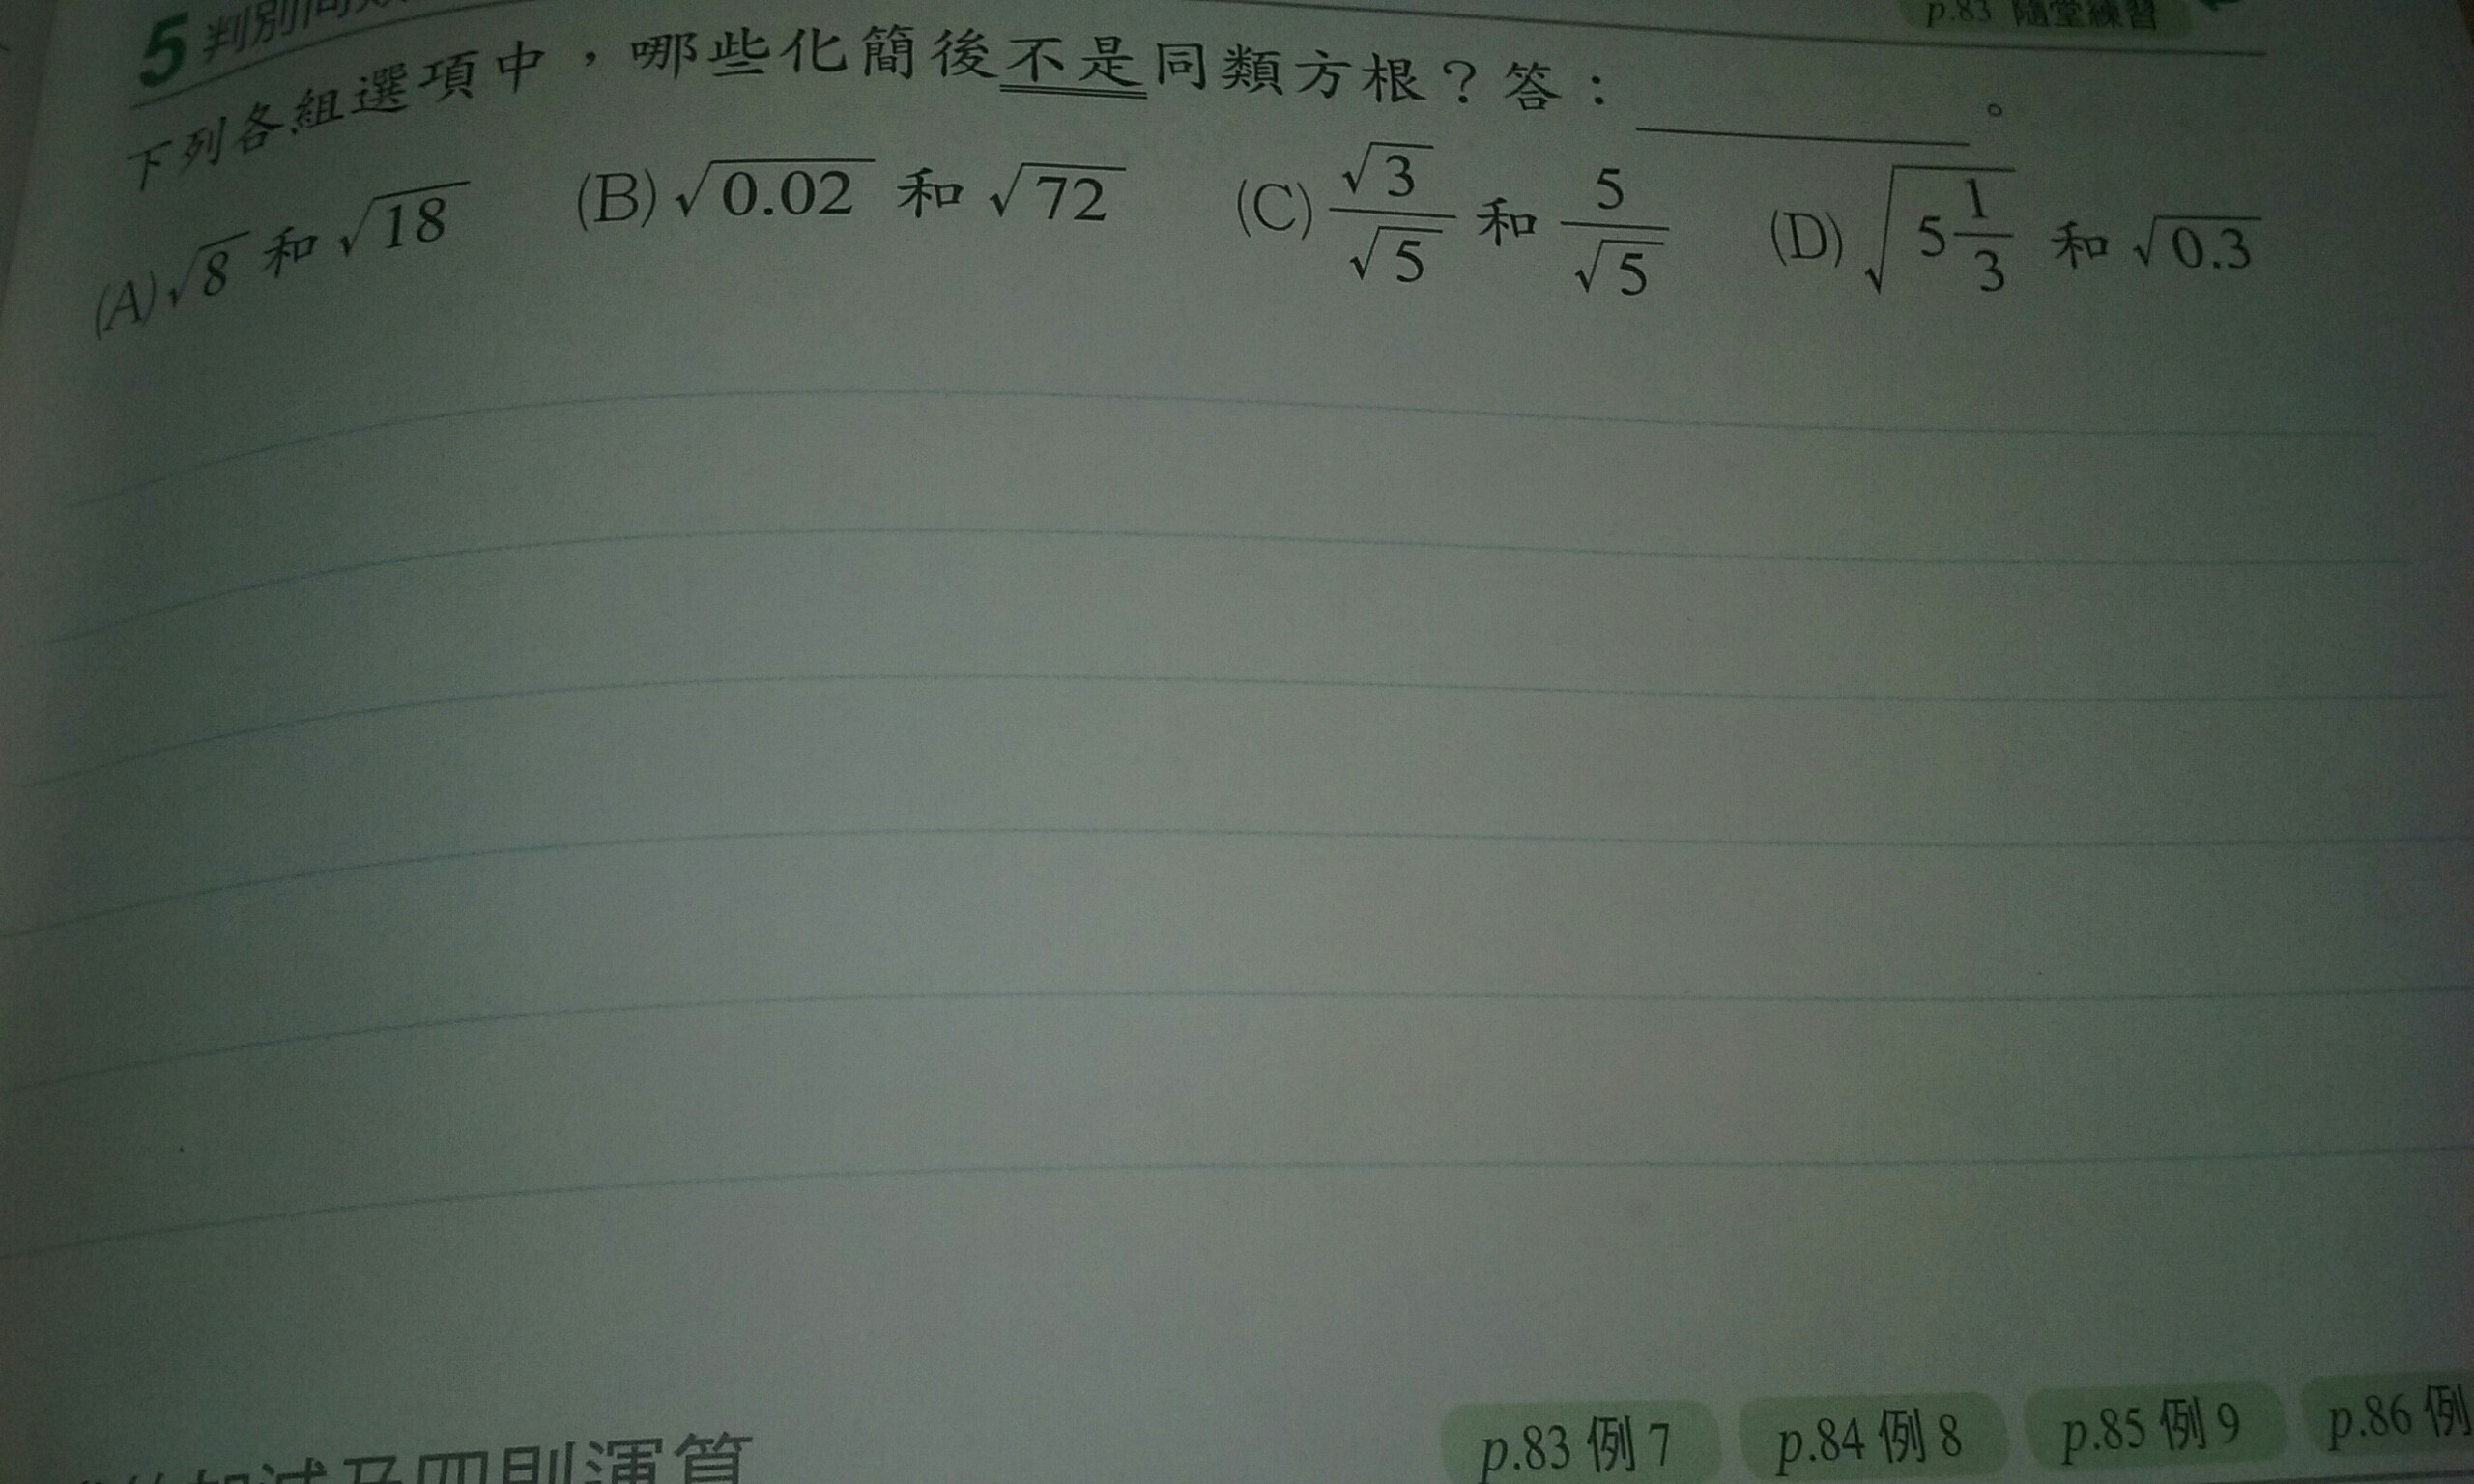 p.83 隨堂練習
5 判別同類
下列各組選項中，哪些化簡後不是同類方根？答：＿＿＿＿。
(A)√8 和 √18 (B)√0.02 和 √72 (C)√3/√5 和 5/√5 (D)√(5 1/3) 和 √0.3
加減及四則運算 p.83 例 7 p.84 例 8 p.85 例 9 p.86 例